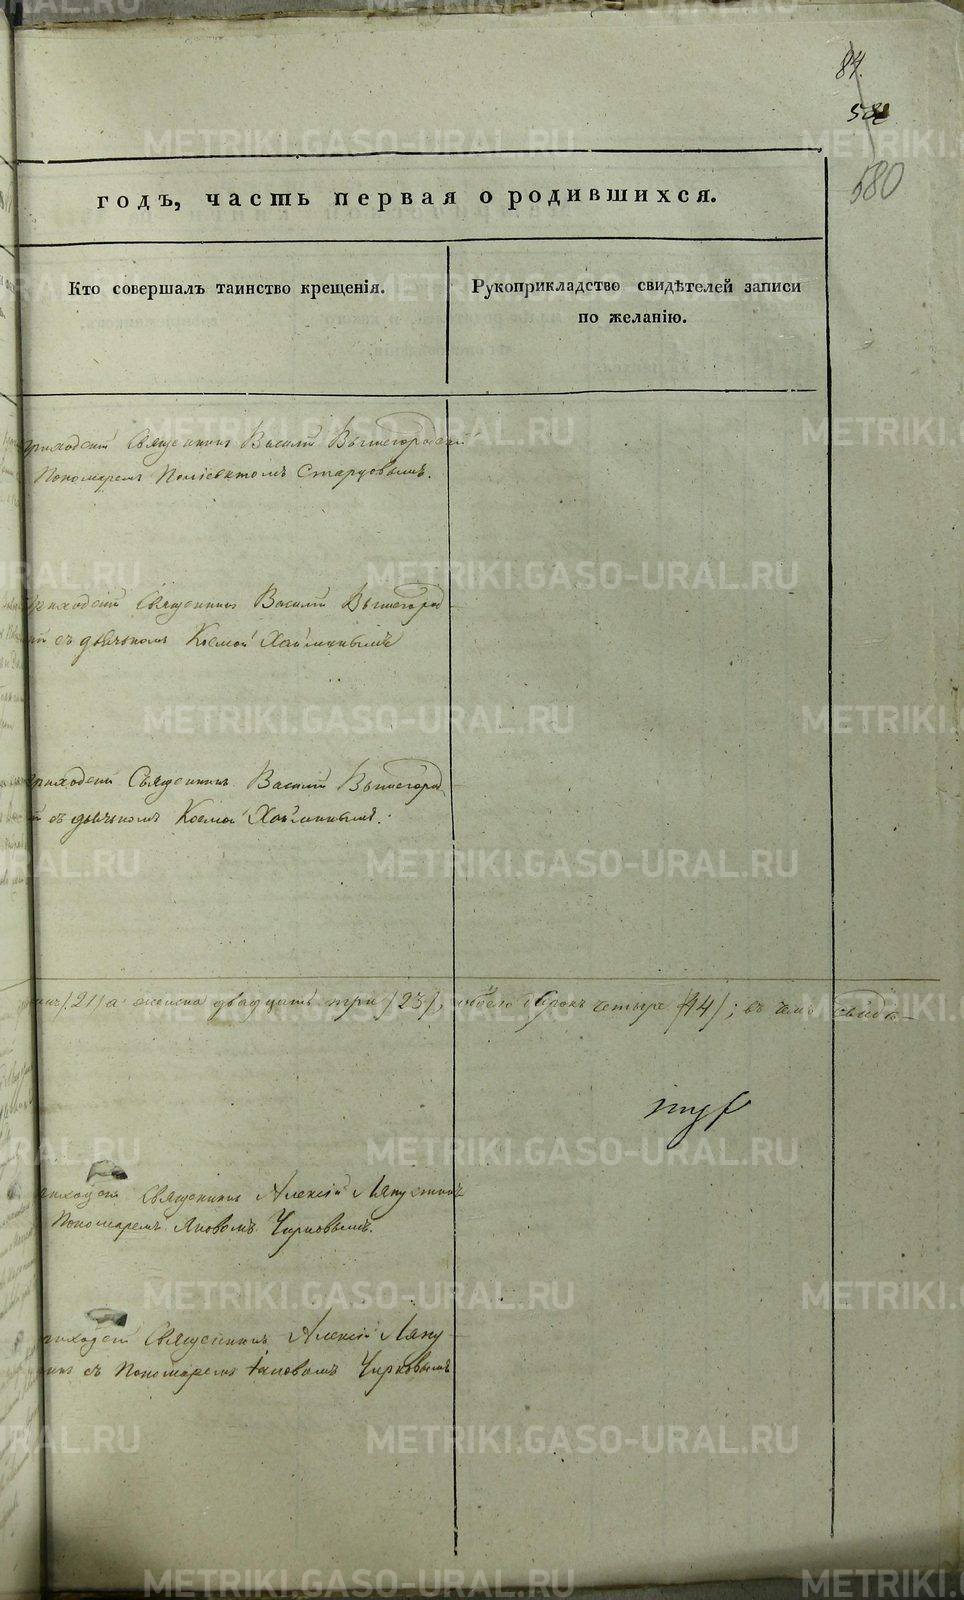 84.
580
годъ, часть первая о родившихся.
Кто совершалъ таинство крещенія.
Рукоприкладство свидѣтелей записи
по желанію.
приходскій Священникъ Василій Вышегородскій
Пономаремъ Поліевктомъ Старцовымъ.
Приходскій Священникъ Василій Вышегород
ій съ дьячкомъ Космой Хайминымъ
приходскій Священникъ Василій Вышегород
й съ дьячкомъ Космой Хайминымъ.
/21/ а женска двадцать три /23/, обоего сорокъ четыре /44/; въ чемъ свидѣ-
приходскій Священникъ Алексій Ляпустинъ
Пономаремъ Яковомъ Чирковымъ.
приходскій Священникъ Алексій Ляпу
инъ съ Пономаремъ Яковомъ Чирковымъ
METRIKI.GASO-URAL.RU